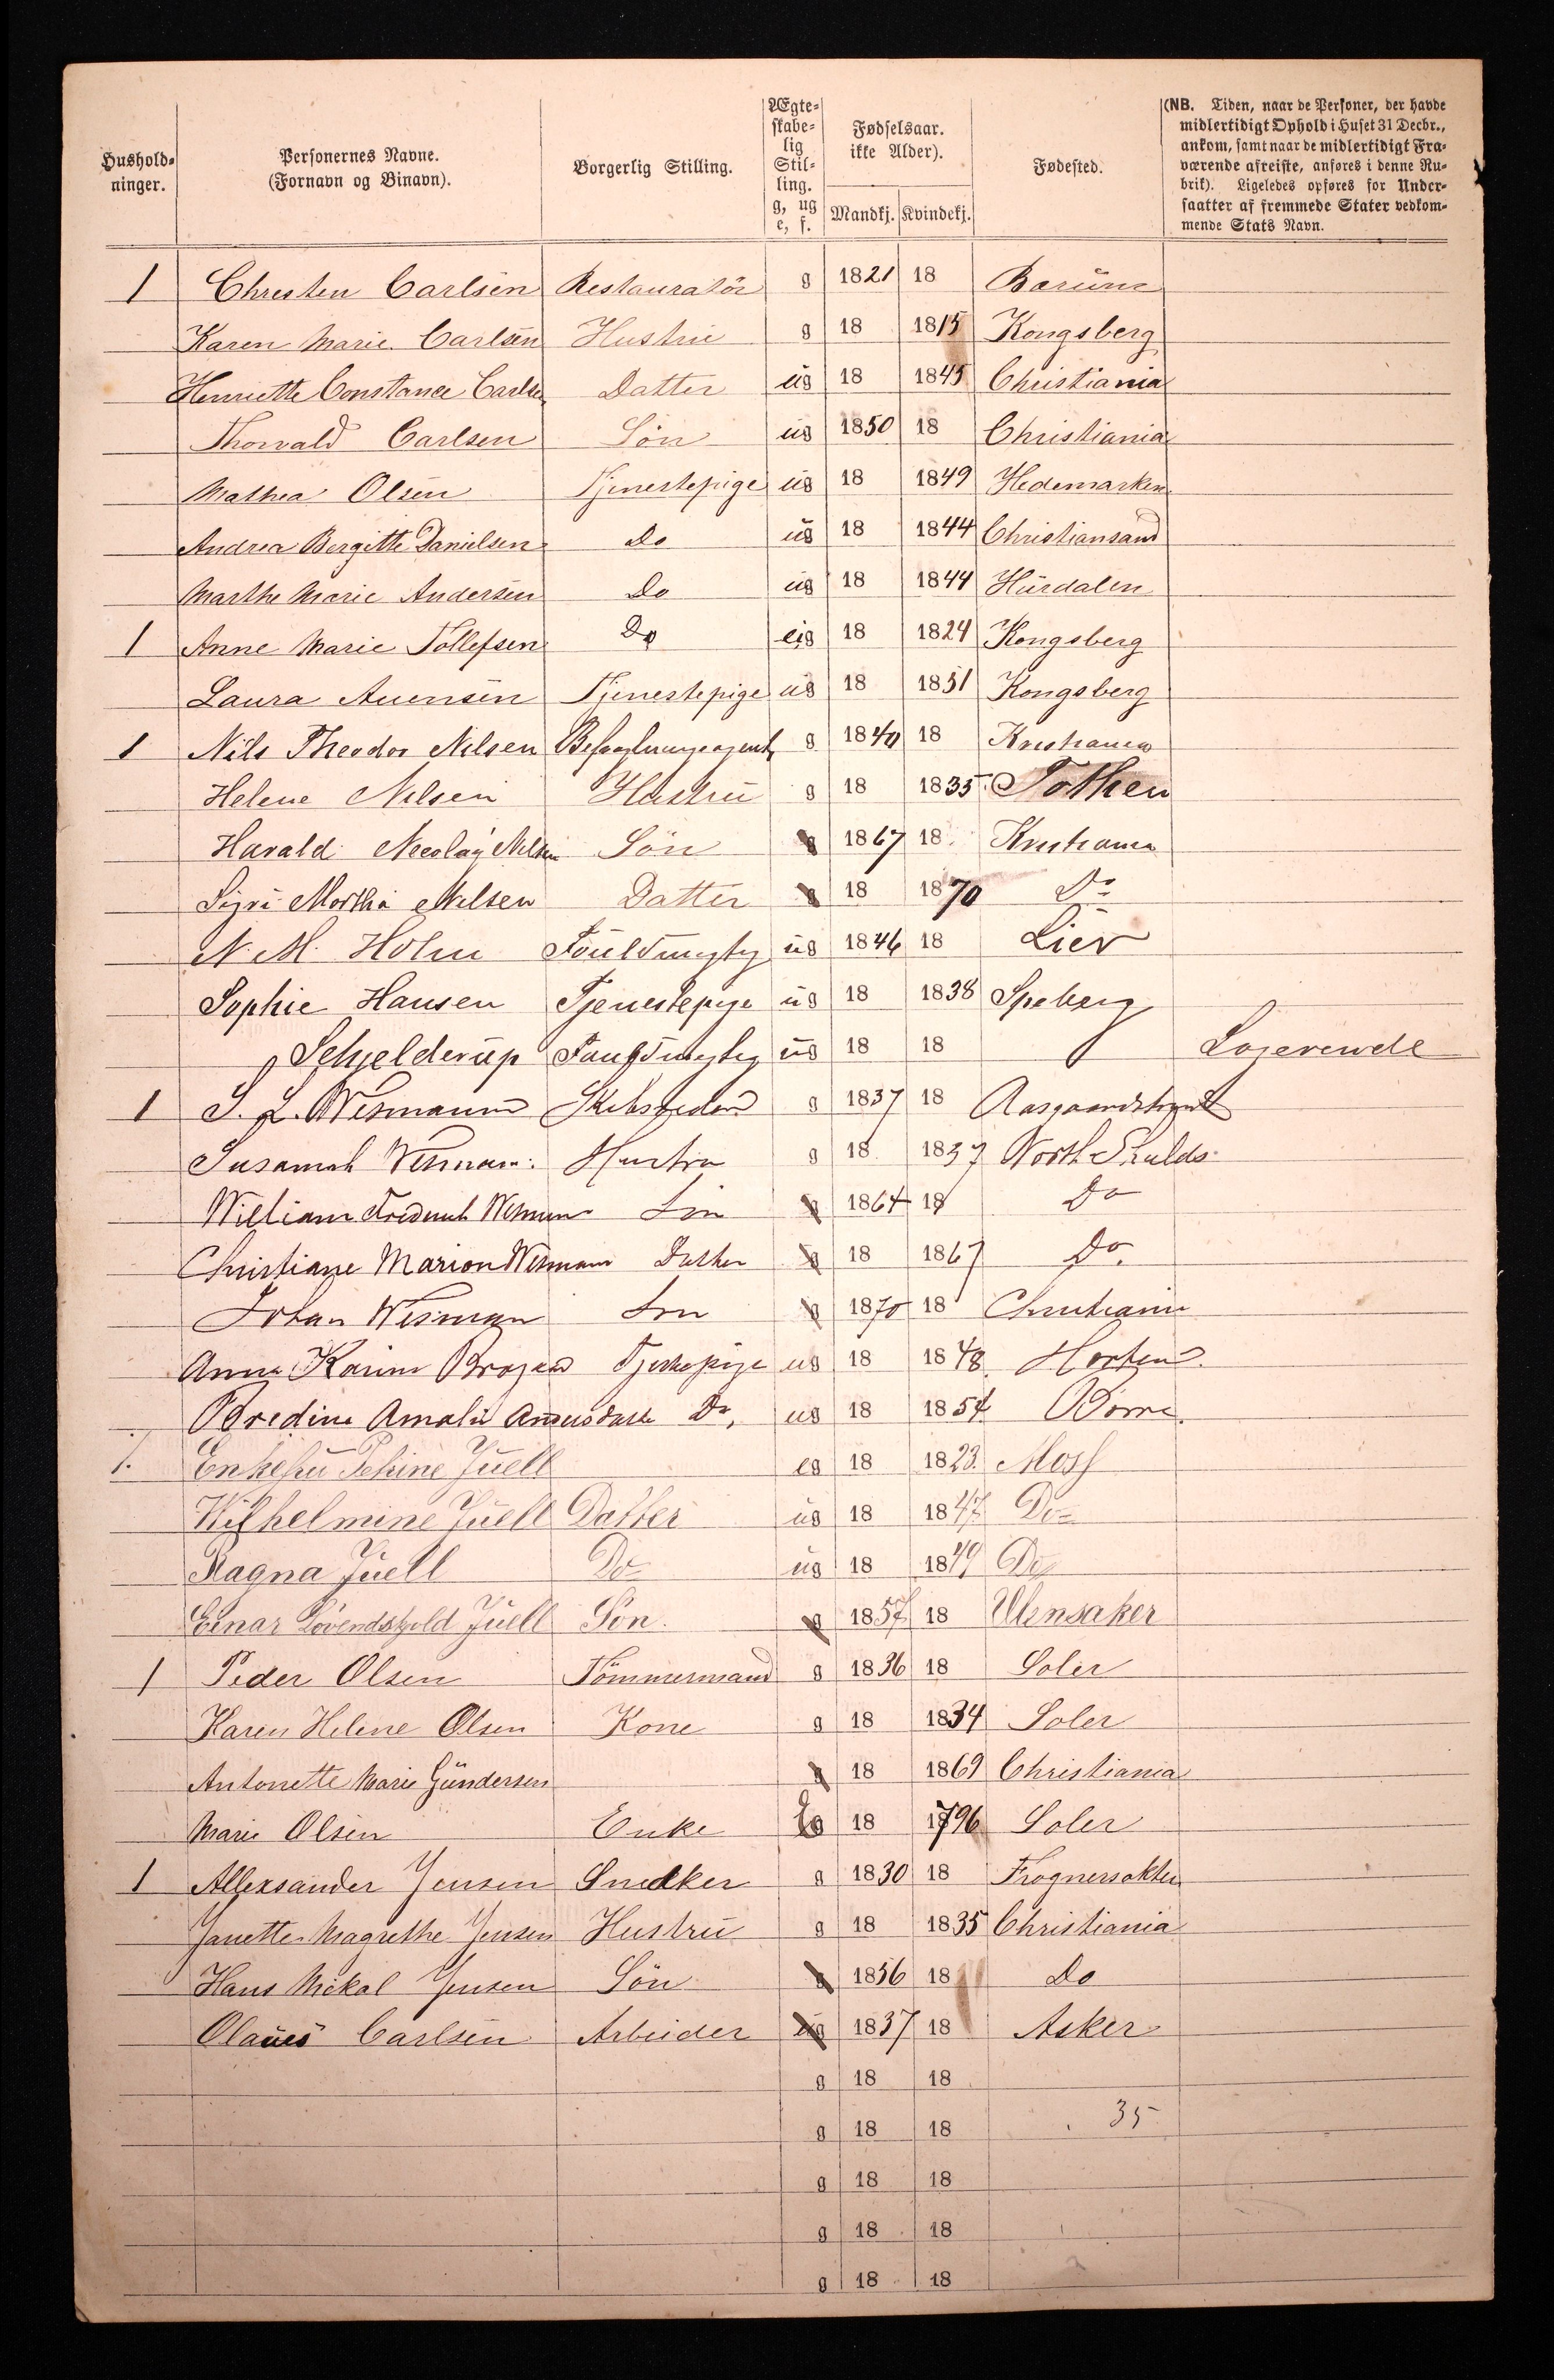 Hushold-
ninger.
Personernes Navne.
(Fornavn og Binavn).
Borgerlig Stilling.
Ægte-
skabe-
lig
Stil-
ling.
g, ug
e, f.
Fødselsaar.
ikke Alder).
Mandkj. Kvindekj.
Fødested.
(NB. Tiden, naar de Personer, der havde
midlertidigt Ophold i Huset 31 Decbr.,
ankom, samt naar de midlertidigt Fra-
værende afreiste, anføres i denne Ru-
brik). Ligeledes opføres for Under-
saatter af fremmede Stater vedkom-
mende Stats Navn.
1 Christen Carlsen Restauratör g 1821 18 Bærum
Karen Marie Carlsen Hustru g 18 1815 Kongsberg
Henriette Constance Carlsen Datter ug 18 1845 Christiania
Thorvald Carlsen Sön ug 1850 18 Christiania
Mathea Olsen Tjenestepige ug 18 1849 Hedemarken
Andrea Bergitte Danielsen Do ug 18 1844 Christiansand
Marthe Marie Andersen Do ug 18 1844 Hurdalen
1 Anne Marie Tollefsen Do eg 18 1824 Kongsberg
Laura Auensen Tjenestepige ug 18 1851 Kongsberg
1 Nils Theodor Nilsen g 1840 18 Kristiania
Helene Nilsen Hustru g 18 1835 Tothen
Harald Nicolay Nilsen Sön g 1867 18 Kristiania
Sigri Martha Nilsen Datter g 18 1870 Do
N. M. Holm ug 1846 18 Lier
Sophie Hansen Tjenestepige ug 18 1838 Speberg
Schjelderup ug 18 18 Logerende
1 S. L. Wismann Skibsreder g 1837 18 Aasgaardstrand
Susannah Wisman Hustru g 18 1837 North Shields
William Fredrick Wisman Sön g 1864 18 Do
Christiane Marion Wismann Datter g 18 1867 Do.
Johan Wisman Sön g 1870 18 Christiania
Anne Karine Tjenestepige ug 18 1848 Horten
Bredine Amalie Andersdatter Do, ug 18 1854 Borre.
1. Enkefru Petrine Juell eg 18 1823. Moss
Wilhelmine Juell Datter ug 18 1847 Do
Ragna Juell Do ug 18 1849 Do
Einar Lövendskjold Juell Sön. g 1857 18 Ulensaker
1 Peder Olsen Tömmermand g 1836 18 Soler
Karen Helene Olsen Kone g 18 1834 Soler
Antonette Marie Gundersen g 18 1869 Christiania
Marie Olsen Enke Eg 18 1796 Soler
1 Allexsander Jensen Snedker g 1830 18 Frognersokten
Janette Magrethe Jensen Hustru g 18 1835 Christiania
Hans Mikal Jensen Sön g 1856 18 Do
Olaues Carlsen Arbeider ug 1837 18 Asker
g 18 18
g 18 18 35
g 18 18
g 18 18
g 18 18